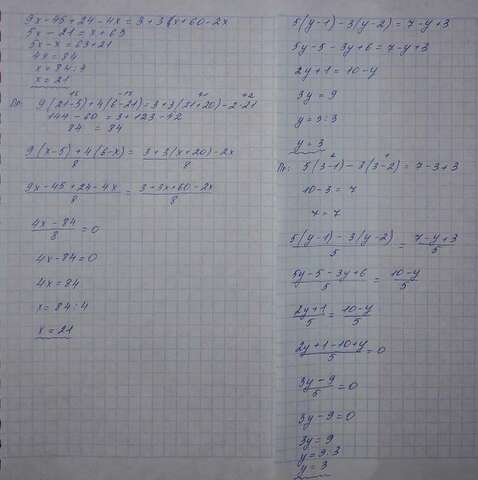 9x-45+24-4x=3+3x+60-2x
5x-21=x+63
5x-x=63+21
4x=84
x=84:4
x=21
Пр: 9(21-5)+4(6-21)=3+3(21+20)-2·21
16 -15 41 42
144-60=3+123-42
84=84
9(x-5)+4(6-x)/8=3+3(x+20)-2x/8
9x-45+24-4x/8=3+3x+60-2x/8
4x-84/8=0
4x-84=0
4x=84
x=84:4
x=21
5(y-1)-3(y-2)=7-y+3
5y-5-3y+6=7-y+3
2y+1=10-y
3y=9
y=9:3
y=3
Пр: 5(3-1)-3(3-2)=7-3+3
2 1
10-3=7
7=7
5(y-1)-3(y-2)/5=7-y+3/5
5y-5-3y+6/5=10-y/5
2y+1/5=10-y/5
2y+1-10+y/5=0
3y-9/5=0
3y-9=0
3y=9
y=9:3
y=3